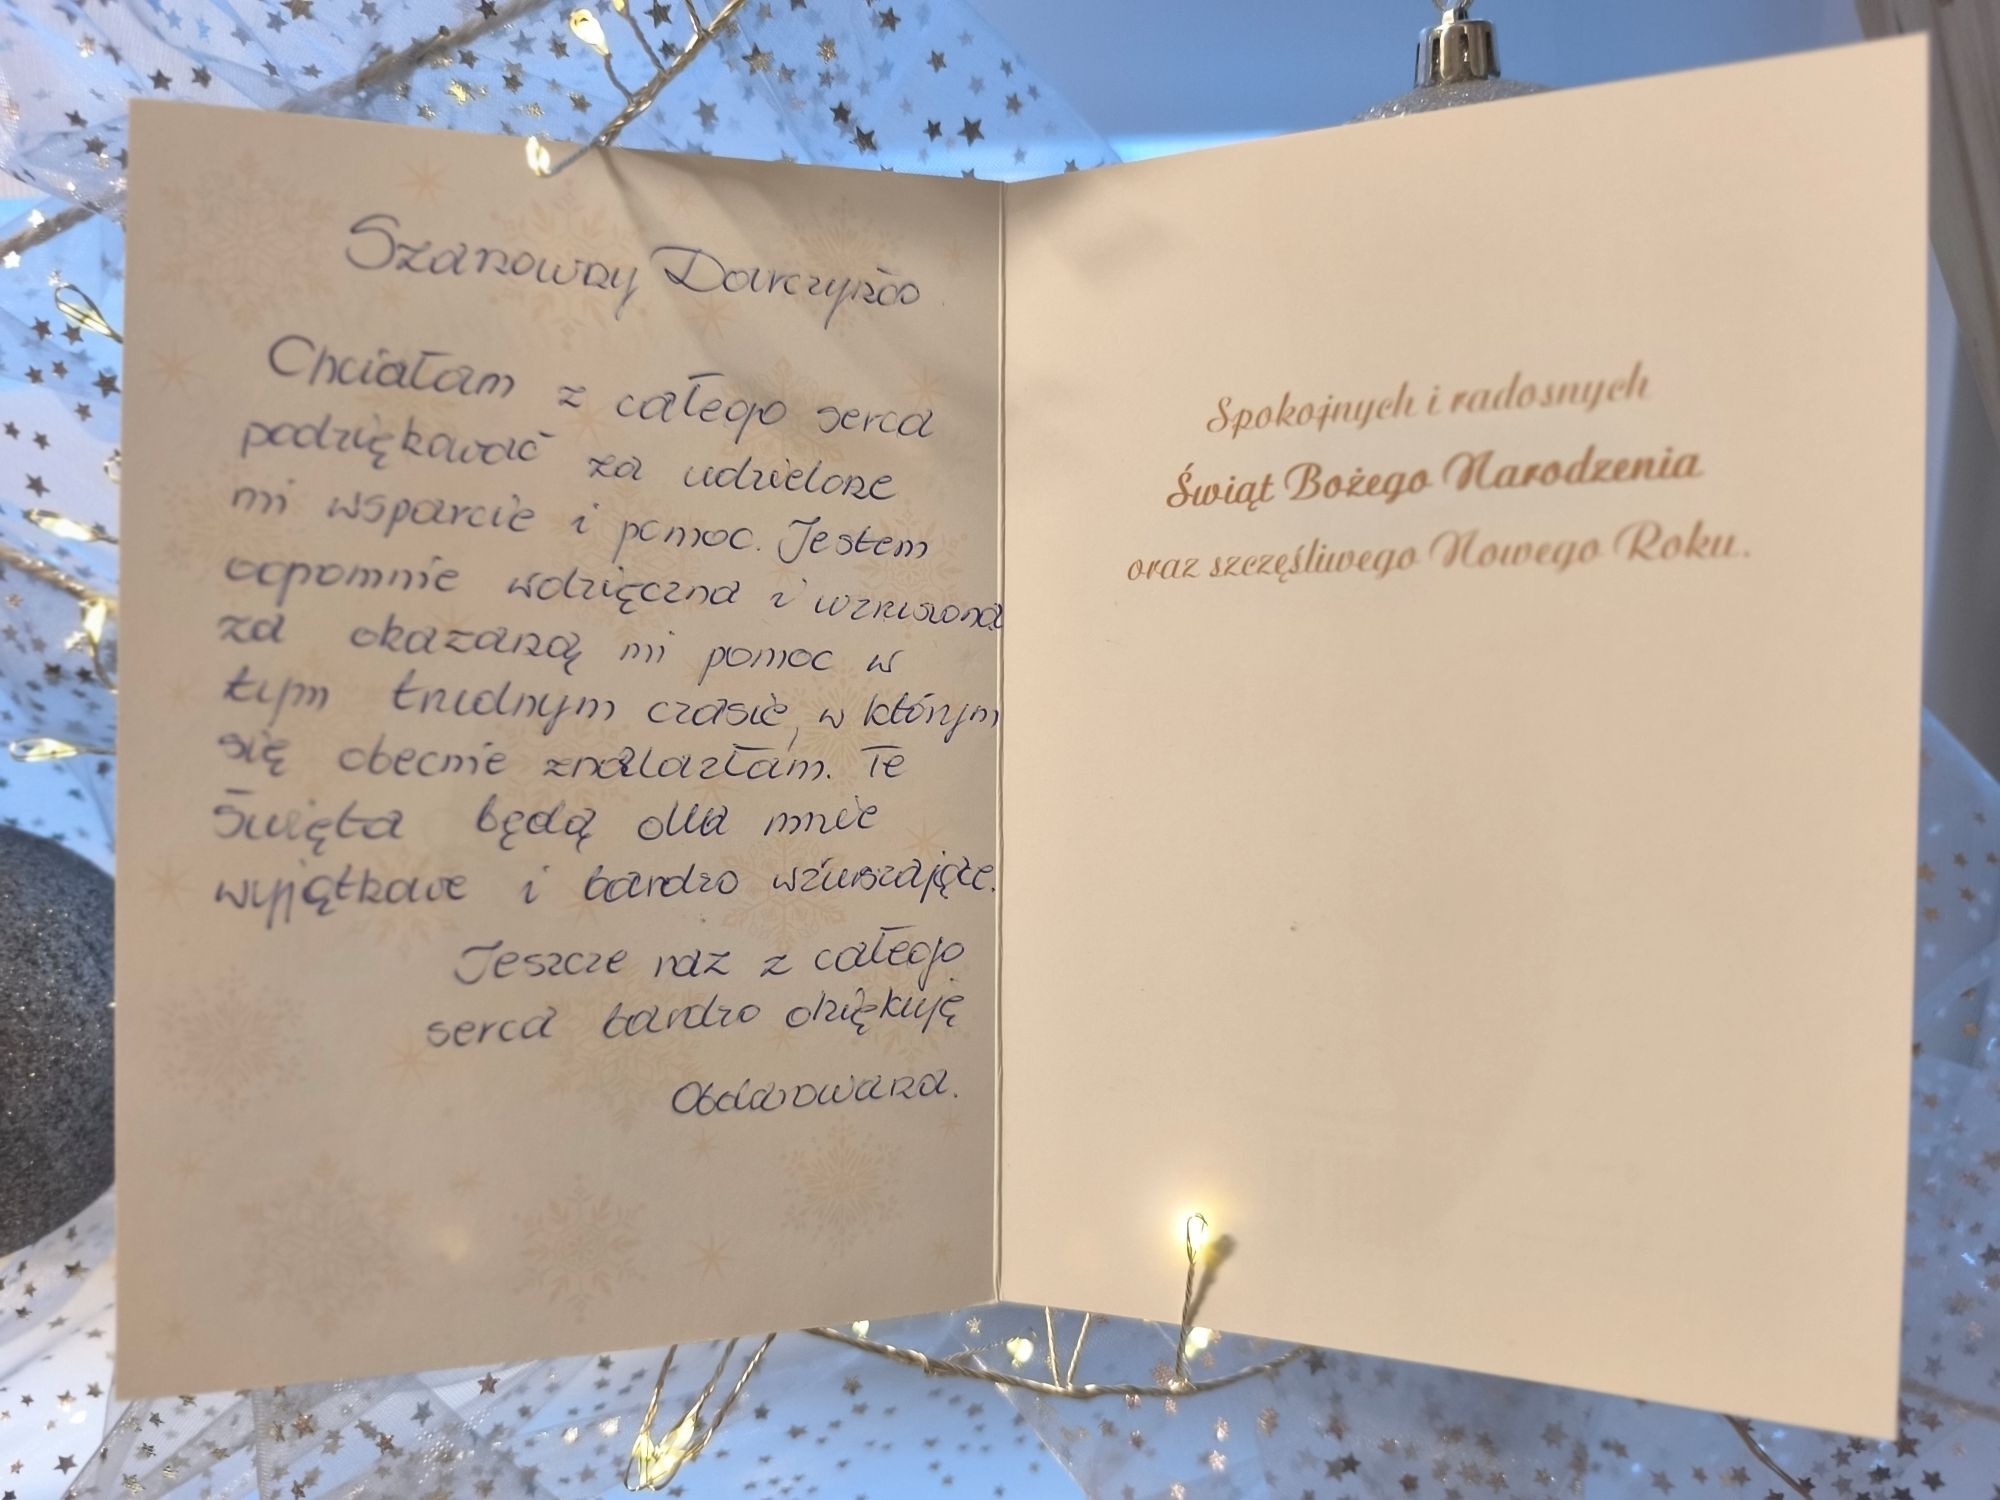 Szanowny Darczyńco
Chciałam z całego serca
podziękować za udzielone
mi wsparcie i pomoc. Jestem
ogromnie wdzięczna i wzruszona
za okazaną mi pomoc w
tym trudnym czasie, w którym
się obecnie znalazłam. Te
Święta będą dla mnie
wyjątkowe i bardzo wzruszające.
Jeszcze raz z całego
serca bardzo dziękuję
Obdarowana.
Spokojnych i radosnych
Świąt Bożego Narodzenia
oraz szczęśliwego Nowego Roku.